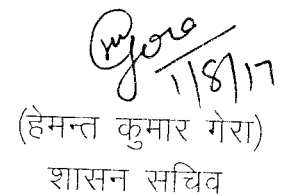 1/8/17
(हेमन्त कुमार गेरा)
शासन सचिव